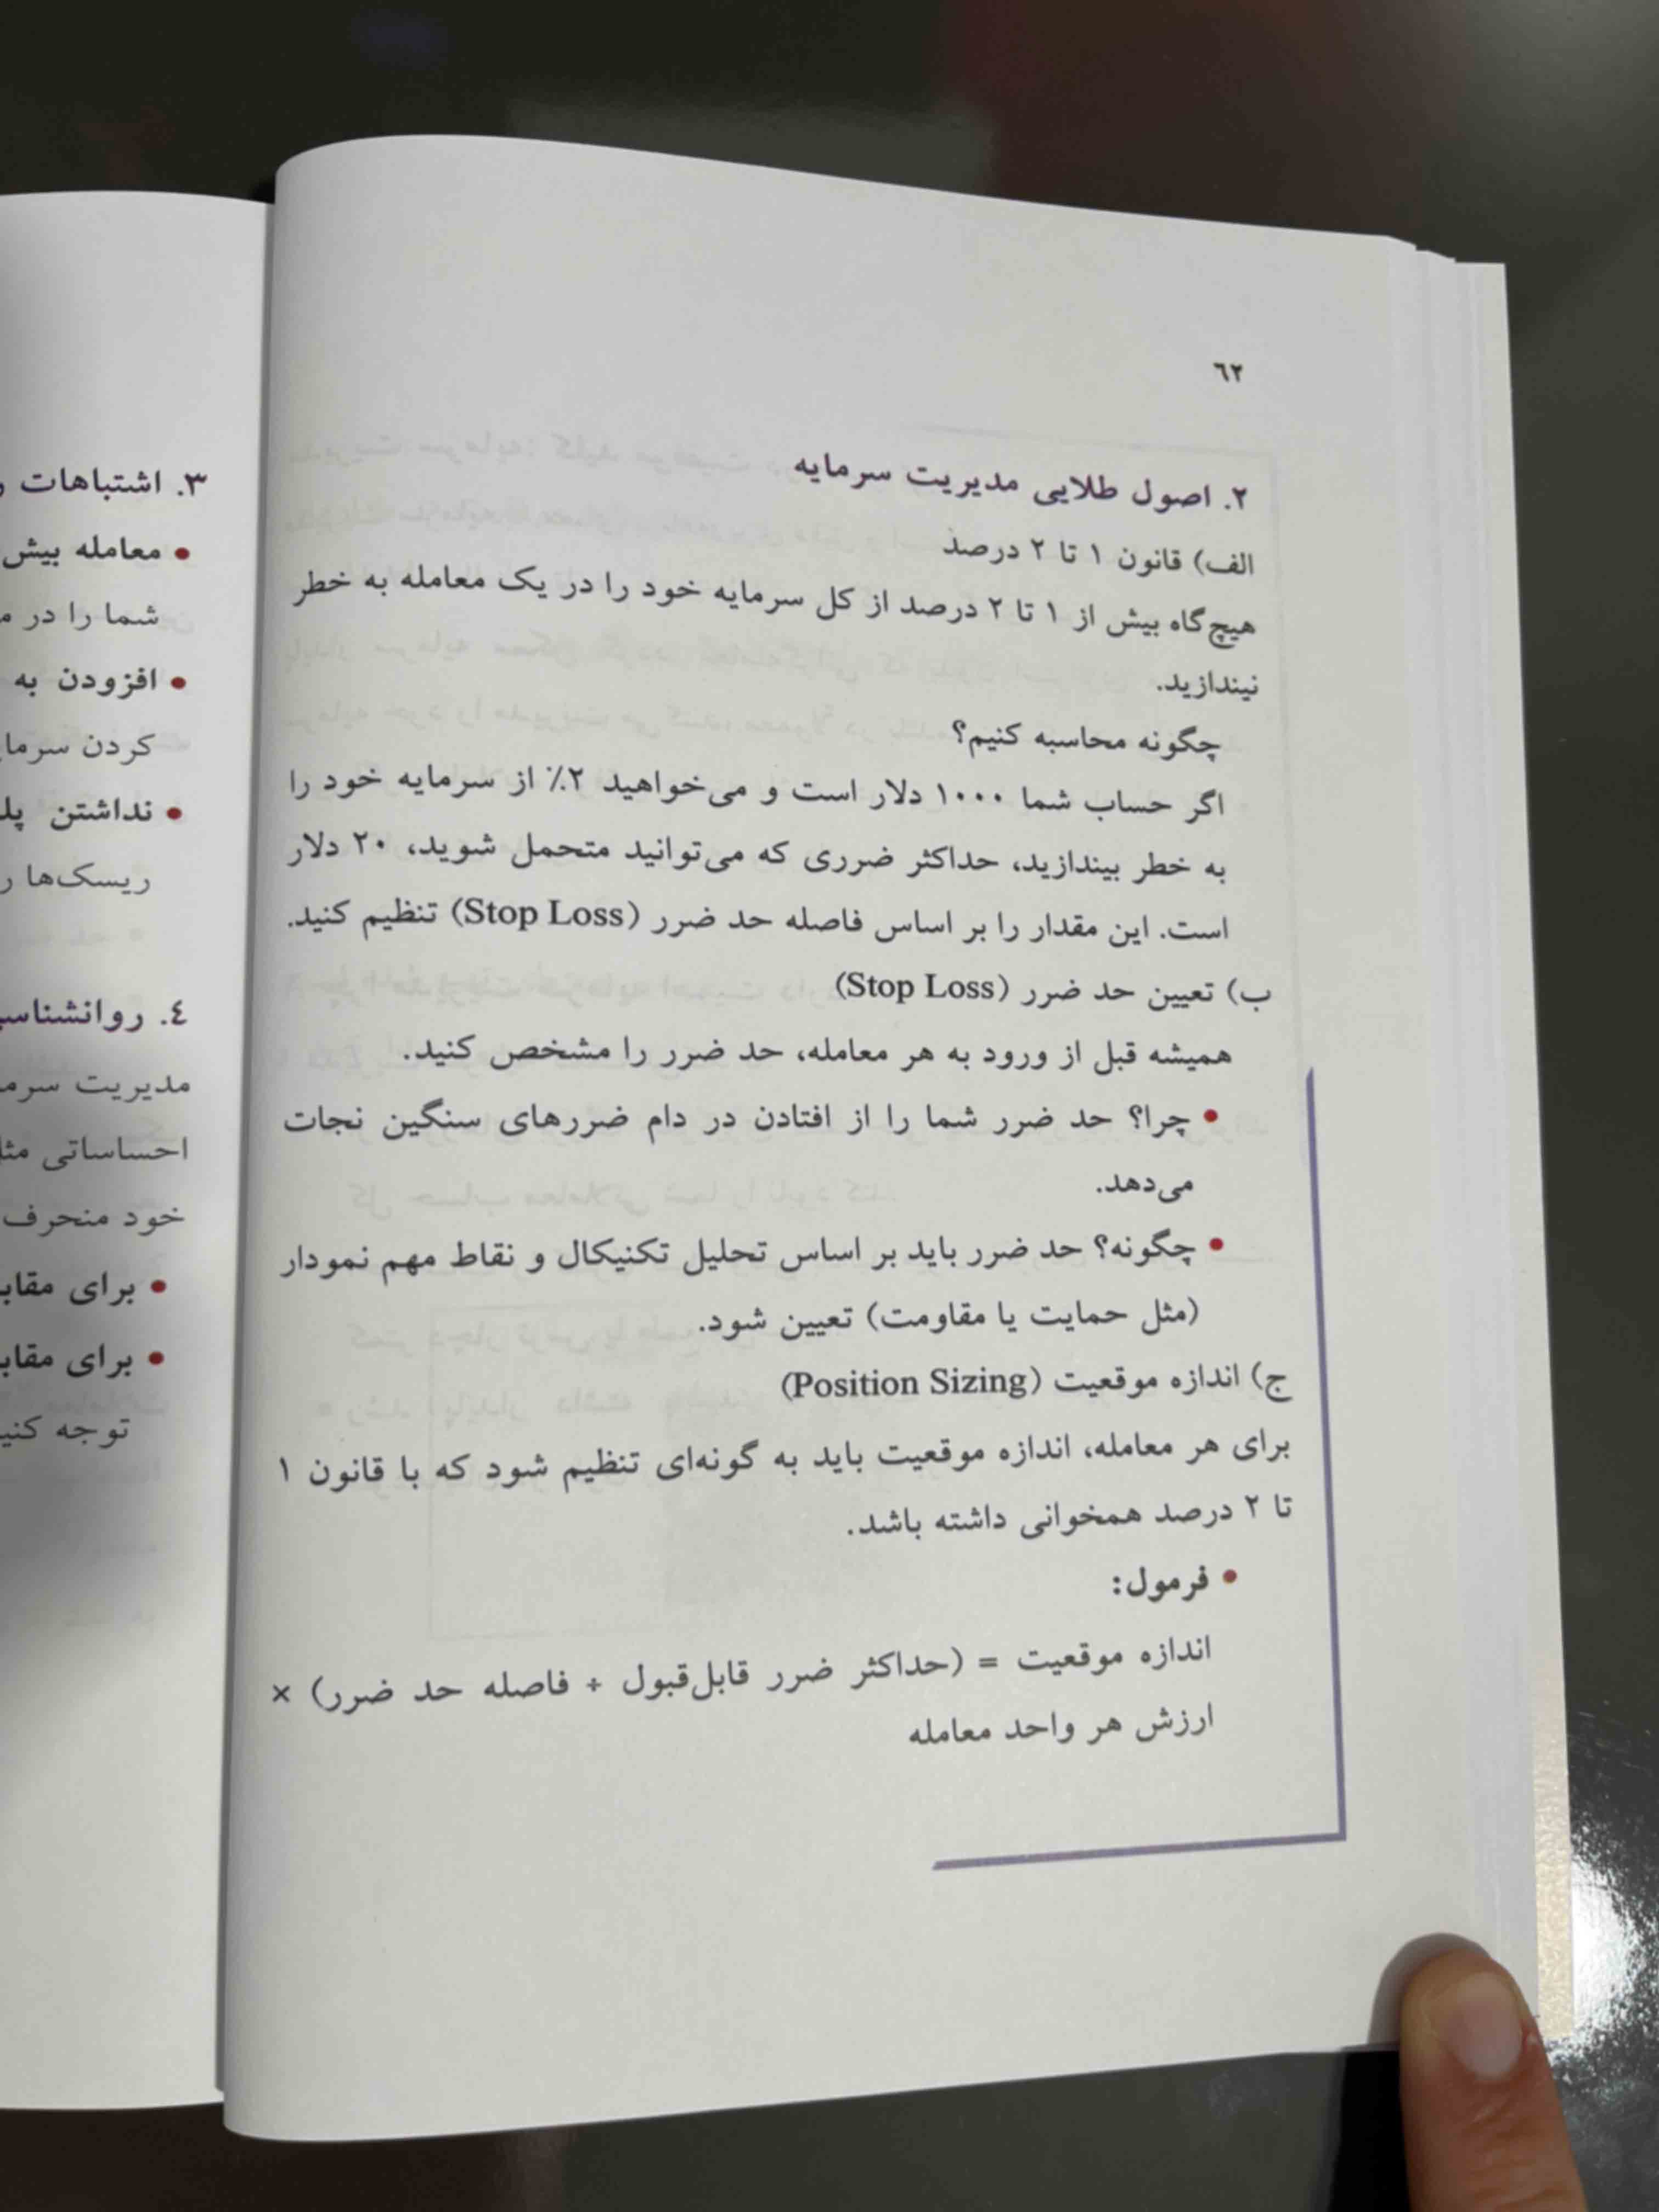 ٦٢
٢. اصول طلایی مدیریت سرمایه
الف) قانون ۱ تا ۲ درصد
هیچ‌گاه بیش از ۱ تا ۲ درصد از کل سرمایه خود را در یک معامله به خطر
نیندازید.
چگونه محاسبه کنیم؟
اگر حساب شما ۱۰۰۰ دلار است و می‌خواهید ۲٪ از سرمایه خود را
به خطر بیندازید، حداکثر ضرری که می‌توانید متحمل شوید، ۲۰ دلار
است. این مقدار را بر اساس فاصله حد ضرر (Stop Loss) تنظیم کنید.
ب) تعیین حد ضرر (Stop Loss)
همیشه قبل از ورود به هر معامله، حد ضرر را مشخص کنید.
• چرا؟ حد ضرر شما را از افتادن در دام ضررهای سنگین نجات
می‌دهد.
• چگونه؟ حد ضرر باید بر اساس تحلیل تکنیکال و نقاط مهم نمودار
(مثل حمایت یا مقاومت) تعیین شود.
ج) اندازه موقعیت (Position Sizing)
برای هر معامله، اندازه موقعیت باید به گونه‌ای تنظیم شود که با قانون ۱
تا ۲ درصد همخوانی داشته باشد.
• فرمول:
اندازه موقعیت = (حداکثر ضرر قابل‌قبول ÷ فاصله حد ضرر) ×
ارزش هر واحد معامله
۳. اشتباهات
• معامله بیش
شما را در
• افزودن به
کردن
• نداشتن
ریسک‌ها
٤.
مدیریت
احساساتی
خود منحرف
• برای
• برای
توجه